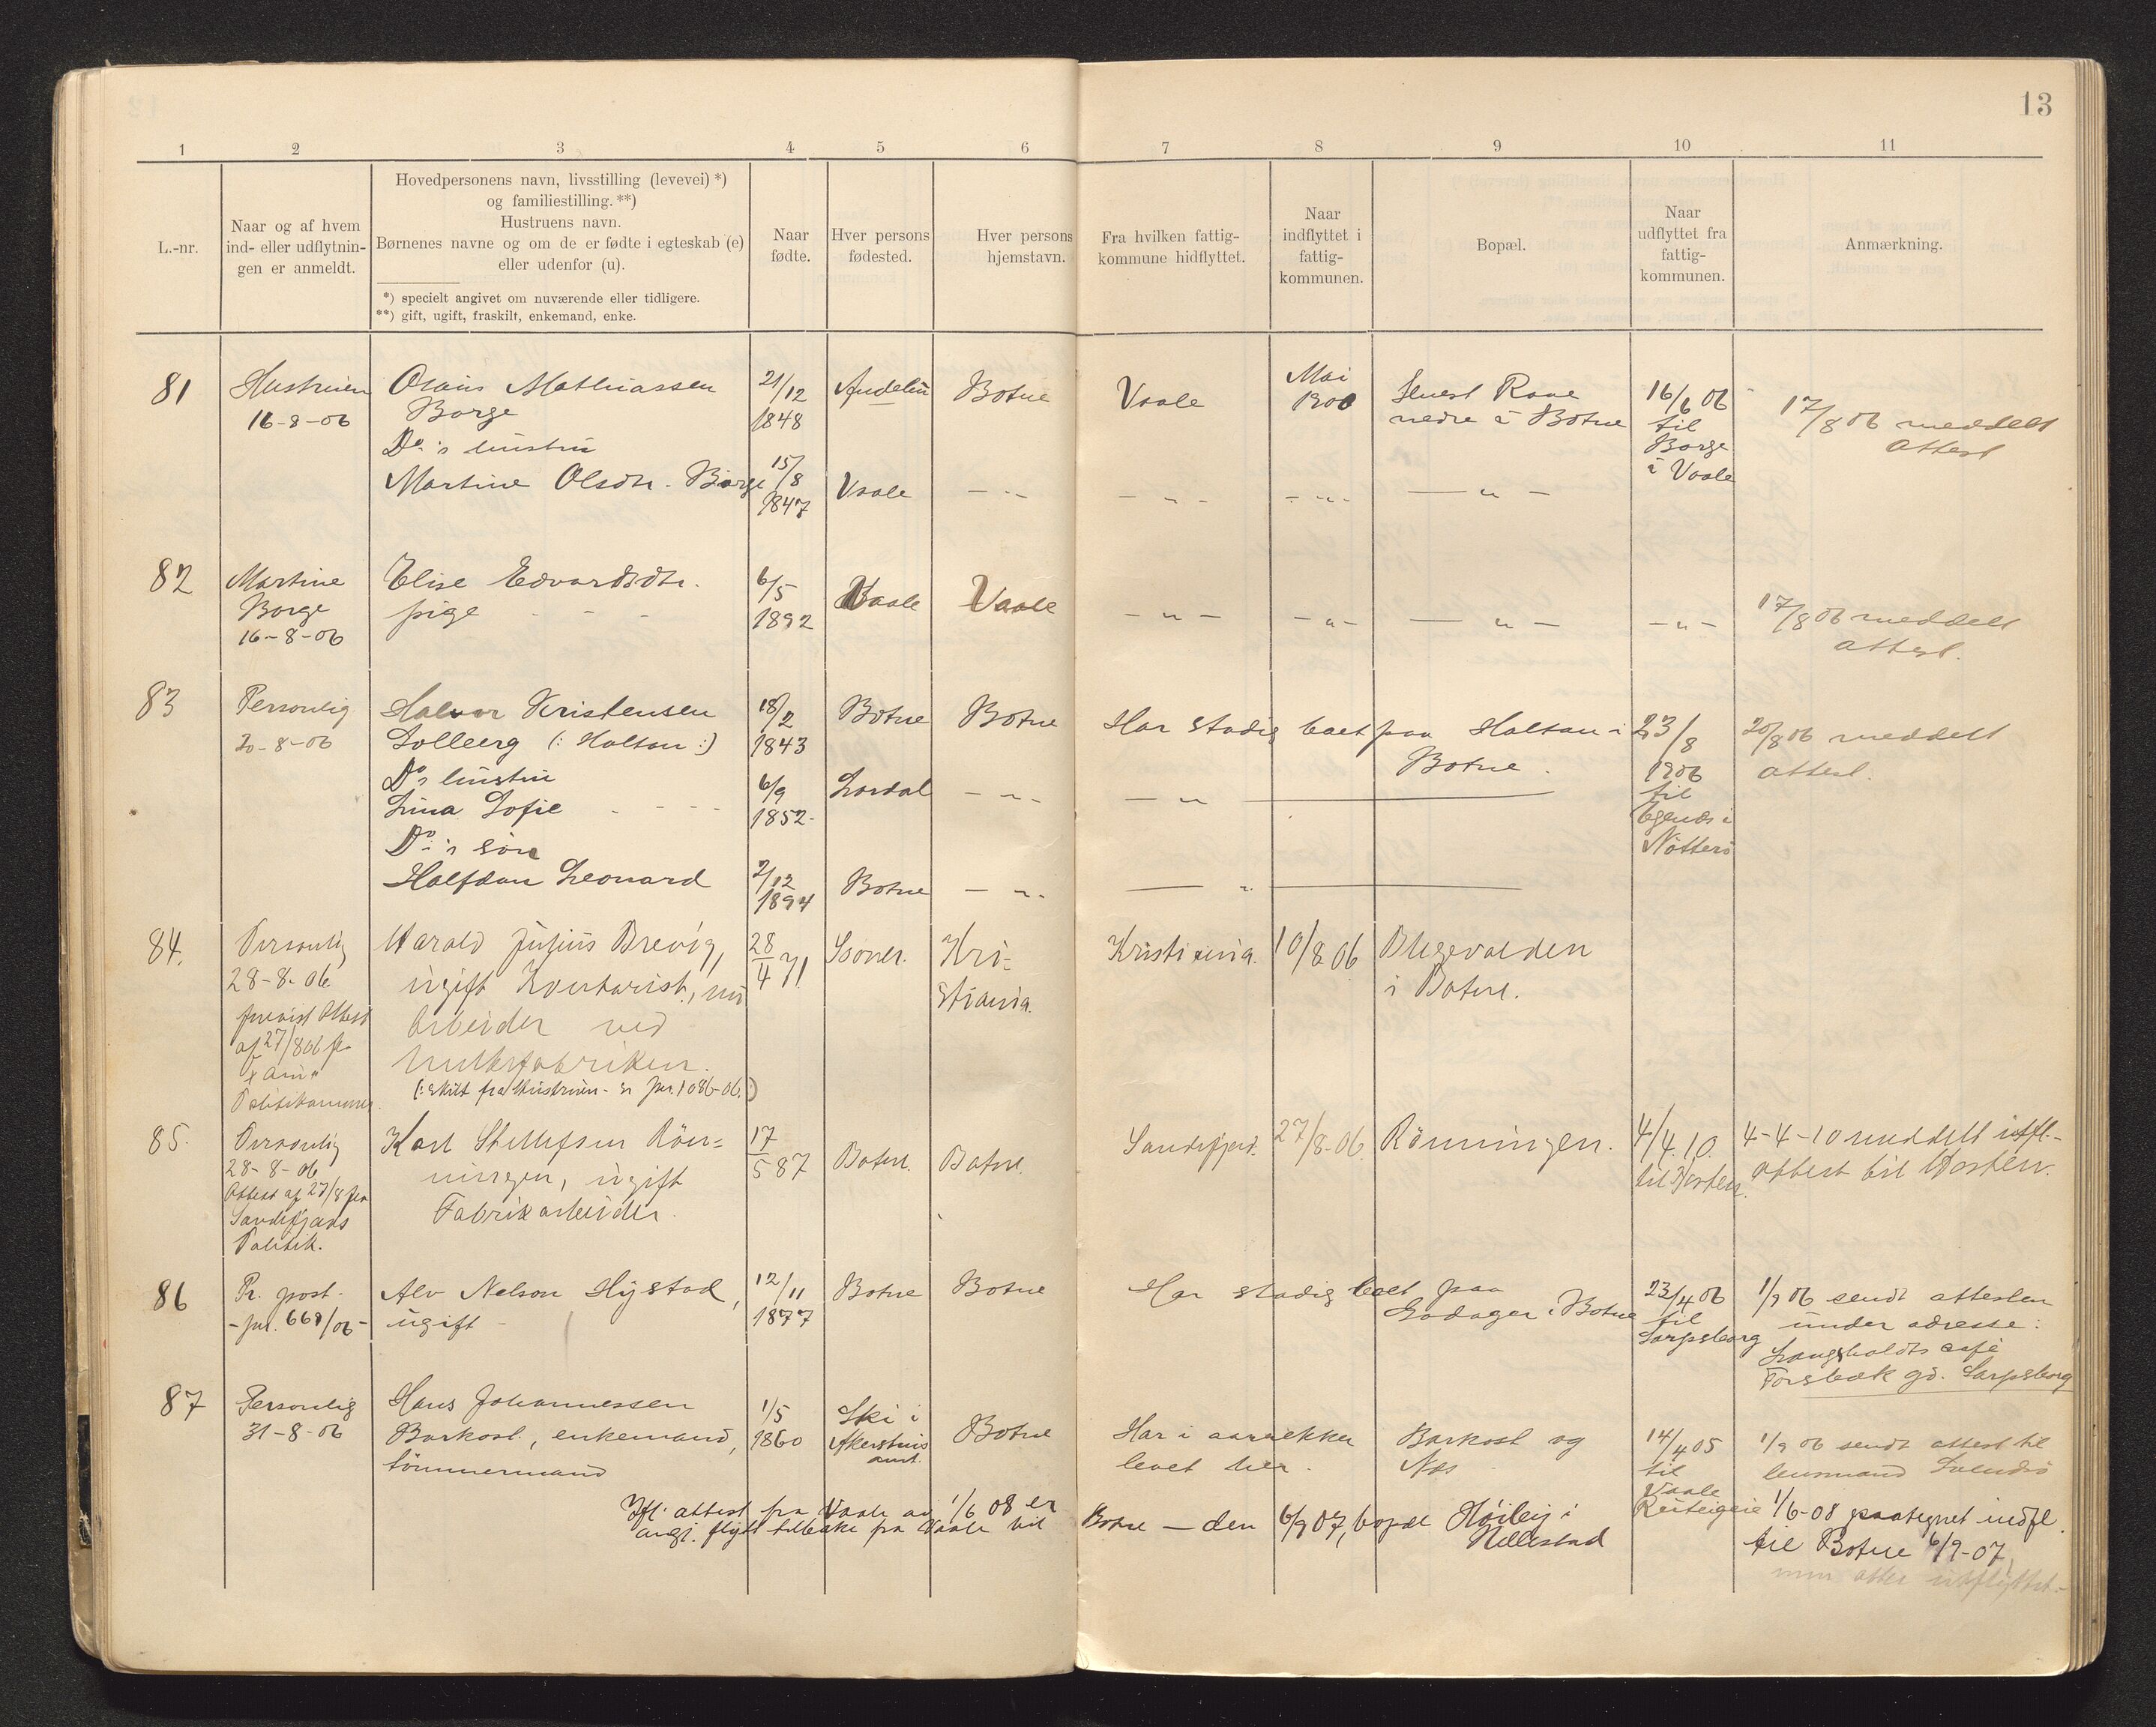 13
1 2 3 4 5 6 7 8 9 10 11
L.-nr.
Naar og af hvem
ind- eller udflytnin-
gen er anmeldt.
Hovedpersonens navn, livsstilling (levevei) *)
og familiestilling. **)
Hustruens navn.
Børnenes navne og om de er fødte i egteskab (e)
eller udenfor (u).
*) specielt angivet om nuværende eller tidligere.
**) gift, ugift, fraskilt, enkemand, enke.
Naar
fødte.
Hver persons
fødested.
Hver persons
hjemstavn.
Fra hvilken fattig-
kommune hidflyttet.
Naar
indflyttet i
fattig-
kommunen.
Bopæl.
Naar
udflyttet fra
fattig-
kommunen.
Anmærkning.
81
Hustruen
16-8-06
Olaus Mathiassen
Borge
Do's hustru
Martine Olsdtr. Borge
21/12
1848
15/8
1847
Andebu
Vaale
Botne
— „ -
Vaale
- „ -
Mai
1900
- „ -
Rane
nedre i Botne
— „ —
16/6 06
til
Borge
i Vaale
17/8 06 meddelt
attest
82
Martine
Borge
16-8-06
Elise Edvardsdtr.
pige - - -
6/5
1892
Vaale
Vaale
— „ —
— „ —
— „ —
— „ —
17/8 06 meddelt
attest.
83
Personlig
20-8-06
Halvor Kristensen
Solberg (: Holtan :)
Do's hustru
Lina Sofie - - - -
Do's søn
Halfdan Leonard
18/2
1843
6/9
1852-
2/12
1894
Botne
Lardal
Botne
Botne
— „ -
— „ -
Har stadig boet paa Holtan i
Botne.
— „ —
— „ —
23/8
1906
til
i
Nøtterø
20/8 06 meddelt
attest.
84.
Personlig
28-8-06
attest
af 27/8 06 fra
Politikammer.
Harald Julius Brevig,
ugift Kontorist, nu
Arbeider ved
(: skilt fra Hustruen - se jnr. 1086-06. :)
28/4 71
Kri-
stiania.
Kristiania.
10/8 06
i Botne.
85.
Personlig
28-8-06
Attest af 27/8 fra
Sandefjords
Politik.
Karl Stillefsen Rön-
ningen, ugift
Fabrikarbeider.
17/5 87
Botne.
Botne.
Sandefjord.
27/8-06.
Rönningen.
4/4.10.
til Horten.
4-4-10 meddelt utfl.-
attest til Horten.
86
Pr. post-
- jnr. 668/06 -
Alv Nelson Hystad,
ugift -
12/11
1877
Botne
Botne
Har stadig boet paa
Godager i Botne
23/4 06
til
Sarpsborg
1/9 06 sendt attesten
under adresse:
Langholdts cafe
Forsbæk gd. Sarpsborg
87
Personlig
31-8-06
Hans Johannessen
Barkost, enkemand,
tømmermand
1/5
1860
Ski i
Akershus
amt.
Botne
Har i aarrekker
levet her.
Barkost og
Nes
14/4 05
til
Vaale
1/9 06 sendt attest til
lensmand
Ifl. attest fra Vaale av 1/6 08 er
angj. flytt tilbake fra Vaale til Botne — den 6/9 07, bopæl Høibei i
Hillestad
1/6-08 paategnet indfl.
til Botne 6/9-07,
men atter utflyttet.-